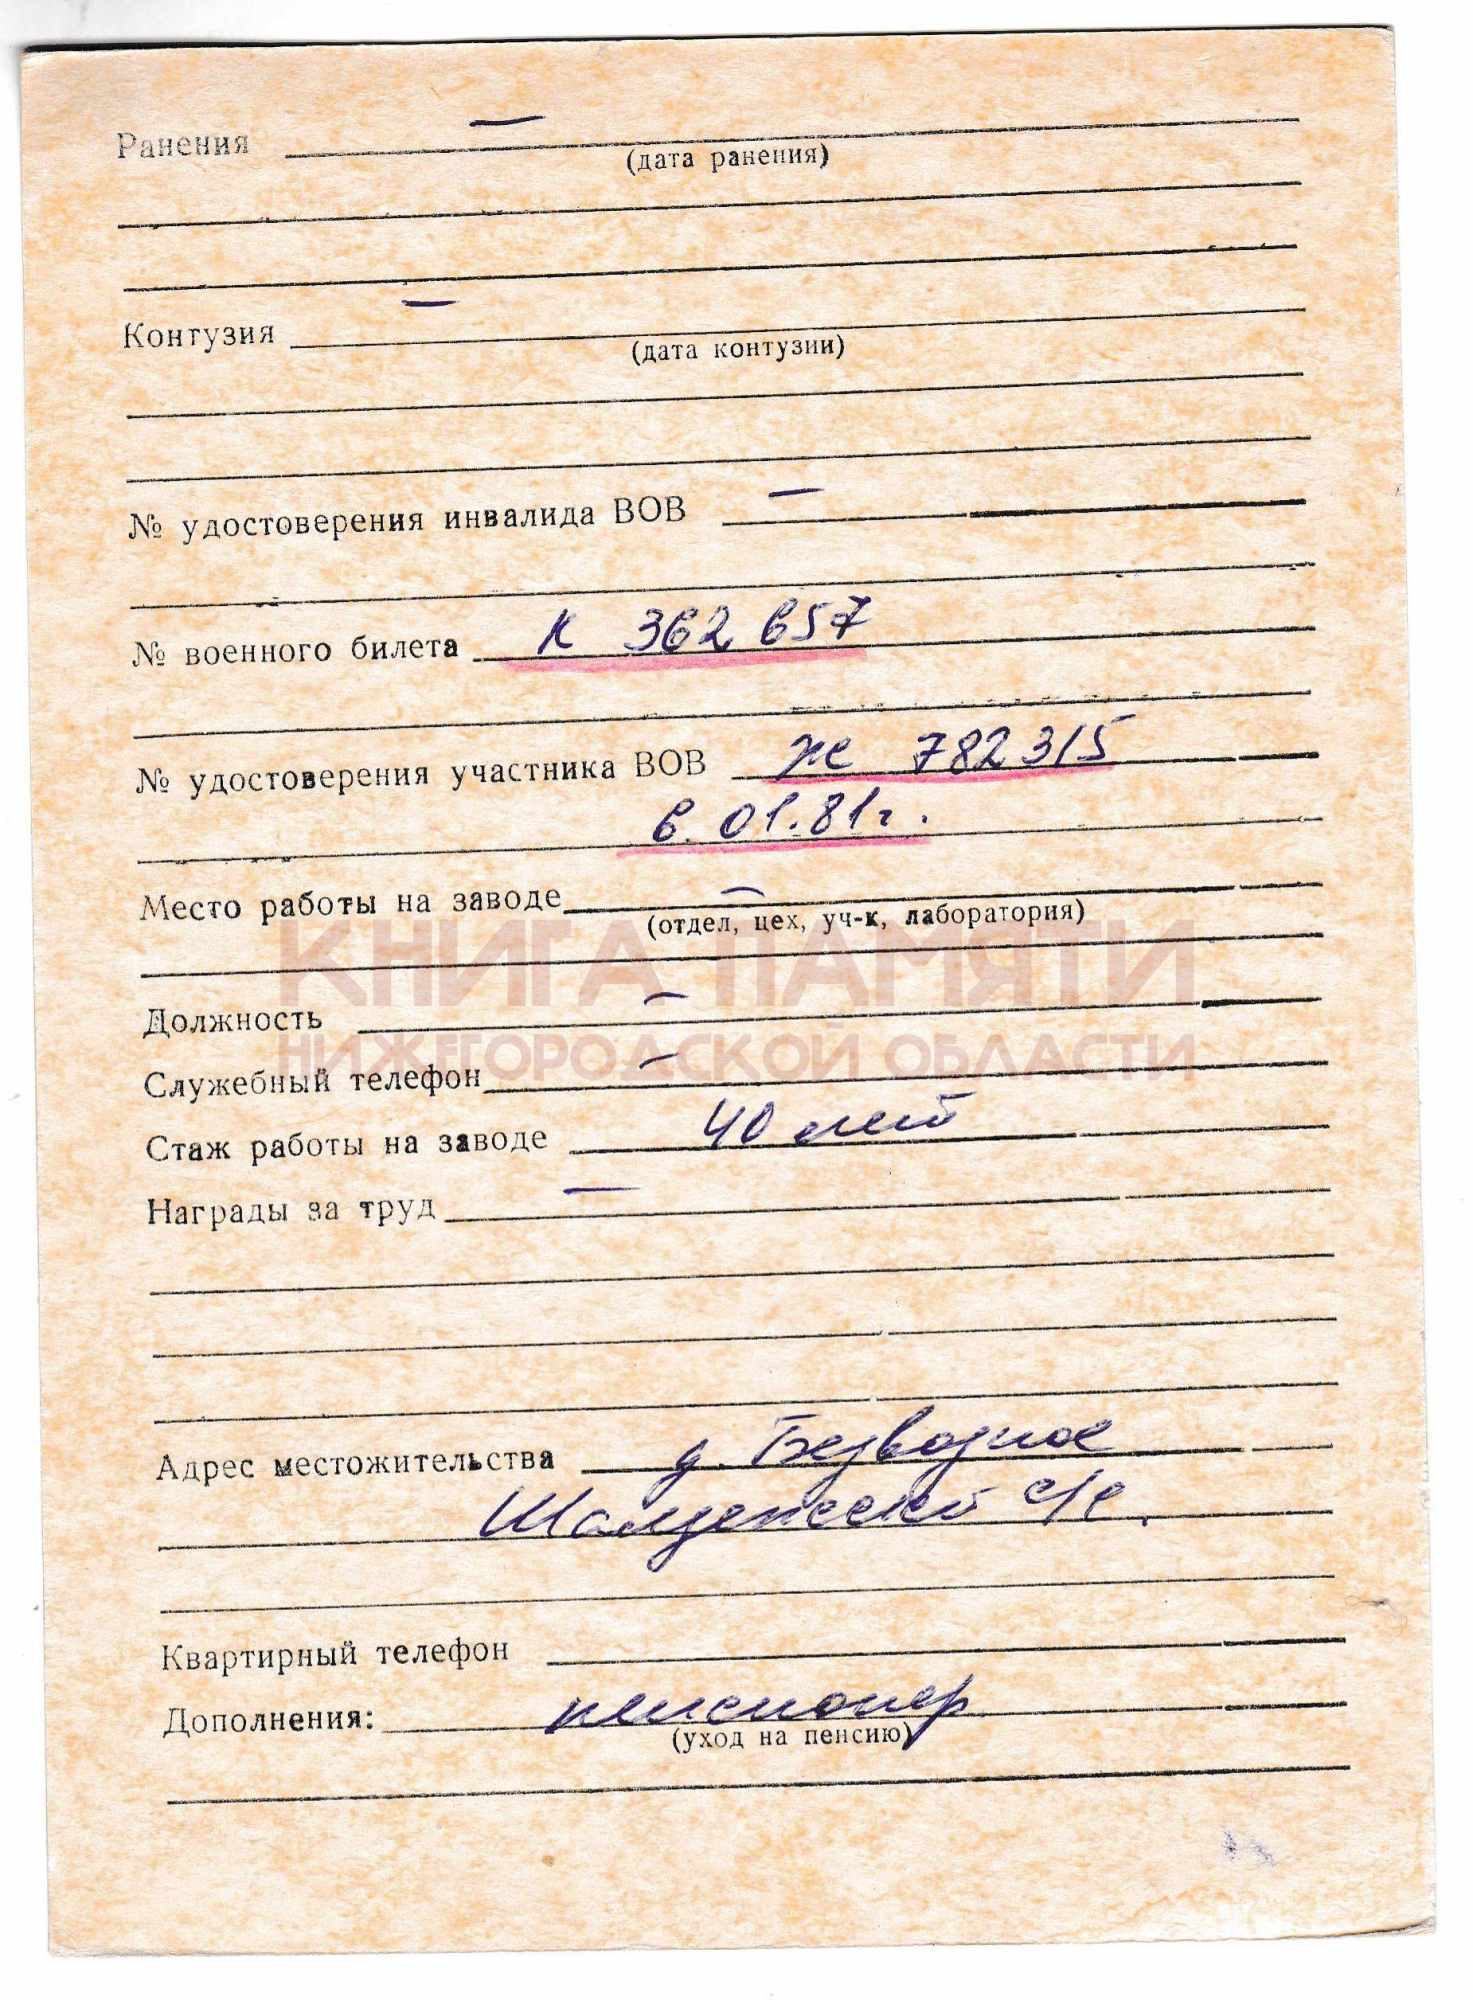 Ранения —
(дата ранения)
Контузия —
(дата контузии)
№ удостоверения инвалида ВОВ —
№ военного билета К 362 657
№ удостоверения участника ВОВ Ж 782315
6.01.81г.
Место работы на заводе —
(отдел, цех, уч-к, лаборатория)
КНИГА ПАМЯТИ
Должность —
НИЖЕГОРОДСКОЙ ОБЛАСТИ
Служебный телефон —
Стаж работы на заводе 40 лет
Награды за труд —
Адрес местожительства д. Безводное
с/с.
Квартирный телефон
Дополнения: пенсионер
(уход на пенсию)